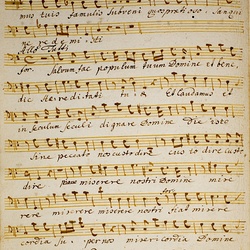 mus tuis famulis subveni quos pretioso. Sangui
ne rede mi. sti
All: Tutti
for Salvum fac populum tuum Domine et bene,
dic Hereditati tu: æ et Laudamus et
in seculum seculi dignare Domine die isto
Sine peccato nos custodire
dire miserere nostri Domine mise
rere miserere miserere nostri fiat misere
cordia tu. per nos misericordia Domine